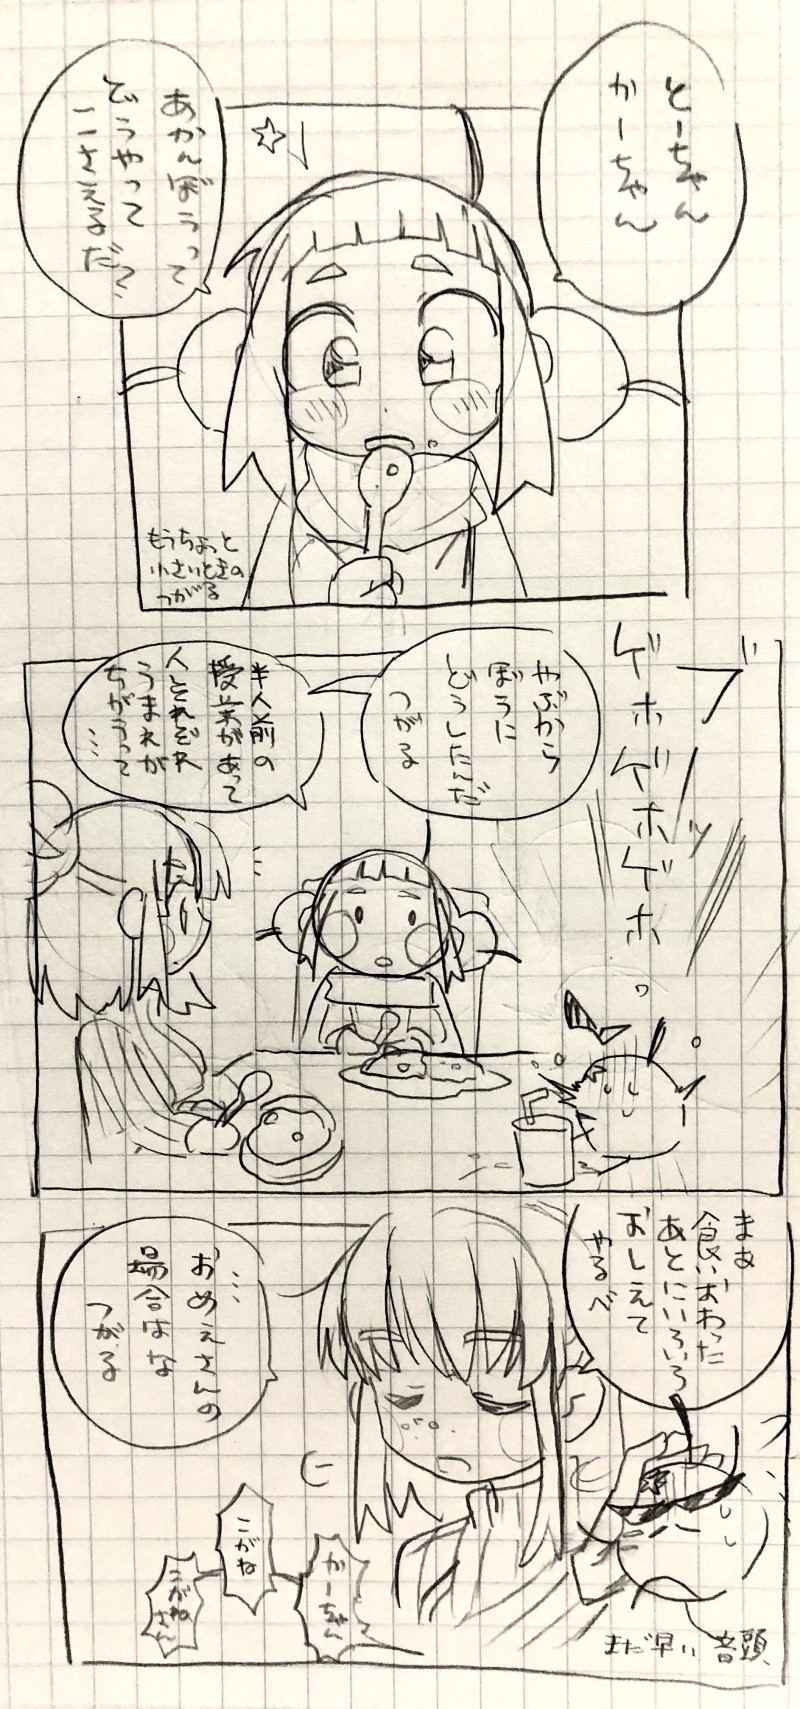 とーちゃん
かーちゃん
あかんぼうって
どうやって
こさえるだ?
もうちょっと
小さいときの
つがる
ブーッ
ゲホゲホゲホ
やぶから
ぼうに
どうしたんだ
つがる
半人前の
授業があって
人それぞれ
うまれが
ちがうって
…
まぁ
食いおわった
あとにいろいろ
おしえて
やるべ
…
おめぇさんの
場合はな
つがる
かーちゃん
こがね
こがね
さん
まだ早い 音頭